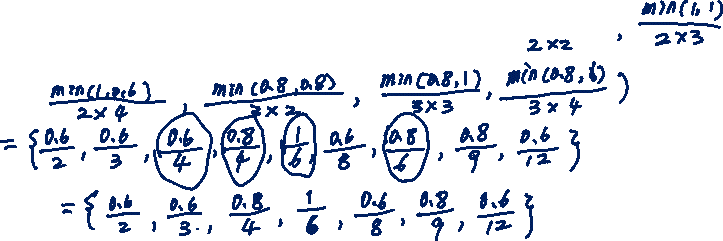 2×2 , min(1,1)/2×3
min(1,0.6)/2×4 , min(0.8,0.8)/3×2 , min(0.8,1)/3×3 , min(0.8,6)/3×4 )
= { 0.6/2 , 0.6/3 , 0.6/4 , 0.8/4 , 1/6 , 0.6/8 , 0.8/6 , 0.8/9 , 0.6/12 }
= { 0.6/2 , 0.6/3 , 0.8/4 , 1/6 , 0.6/8 , 0.8/9 , 0.6/12 }